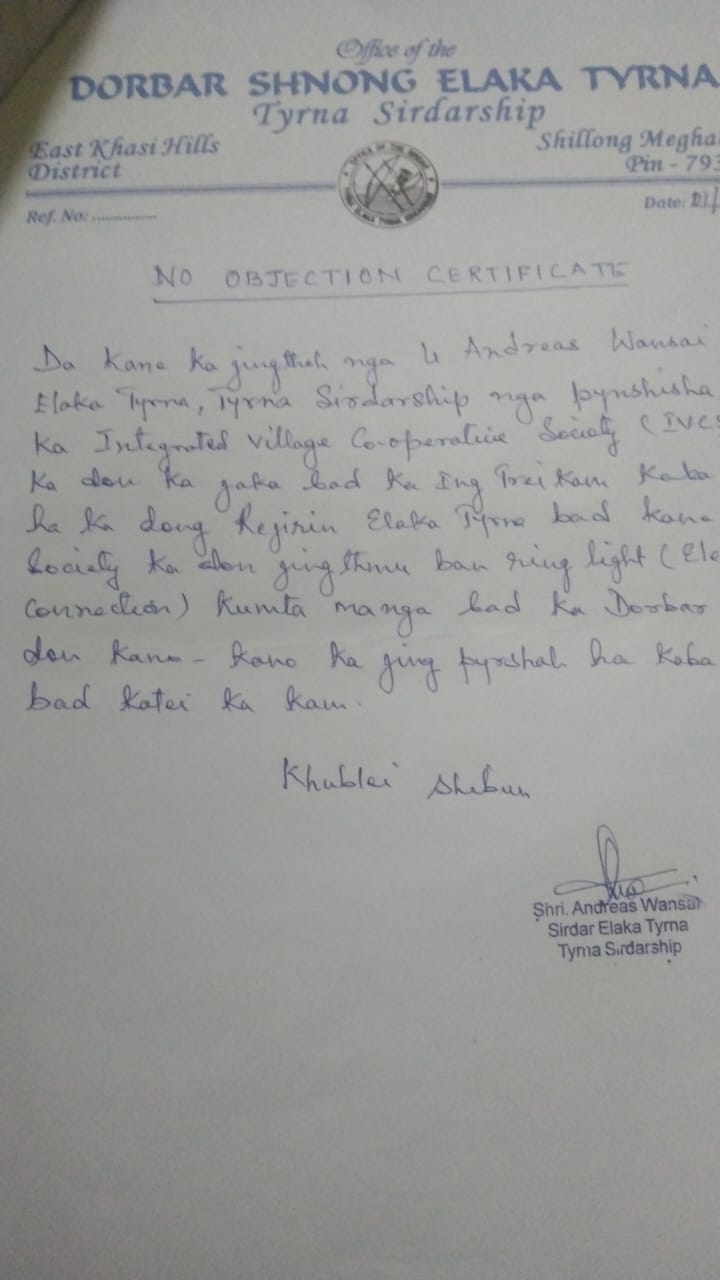 Office of the
DORBAR SHNONG ELAKA TYRNA
Tyrna Sirdarship
East Khasi Hills
District
Shillong Megha
Pin - 793
Ref. No: ..............
Date: 21/
NO OBJECTION CERTIFICATE
Da kane ka jingthoh nga U Andreas Wansai
Elaka Tyrna, Tyrna Sirdarship nga pynshisha
ka Integrated Village Co-operative Society (IVCS
ka don ka jaka bad ka Ing Treikam kaba
ha ka dong Rejirin Elaka Tyrna bad kane
Society ka don jingthmu ban ring light (Ele
Connection) Kumta manga bad ka Dorbar
don kano - kano ka jing pyrshah ha kaba
bad katei ka kam.
Khublei Shibun
Shri. Andreas Wansai
Sirdar Elaka Tyrna
Tyrna Sirdarship